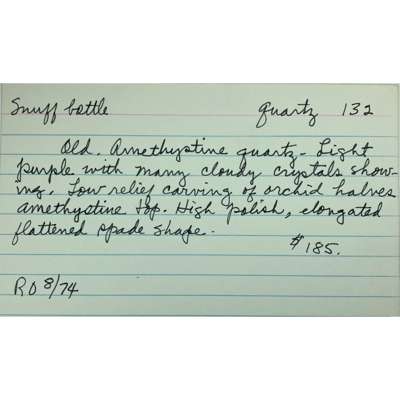 Snuff bottle quartz 132
Old. Amethystine quartz. Light
purple with many cloudy crystals show-
ing. Low relief carving of orchid halves
amethystine top. High polish, elongated
flattened spade shape.
$185.
RO 8/74